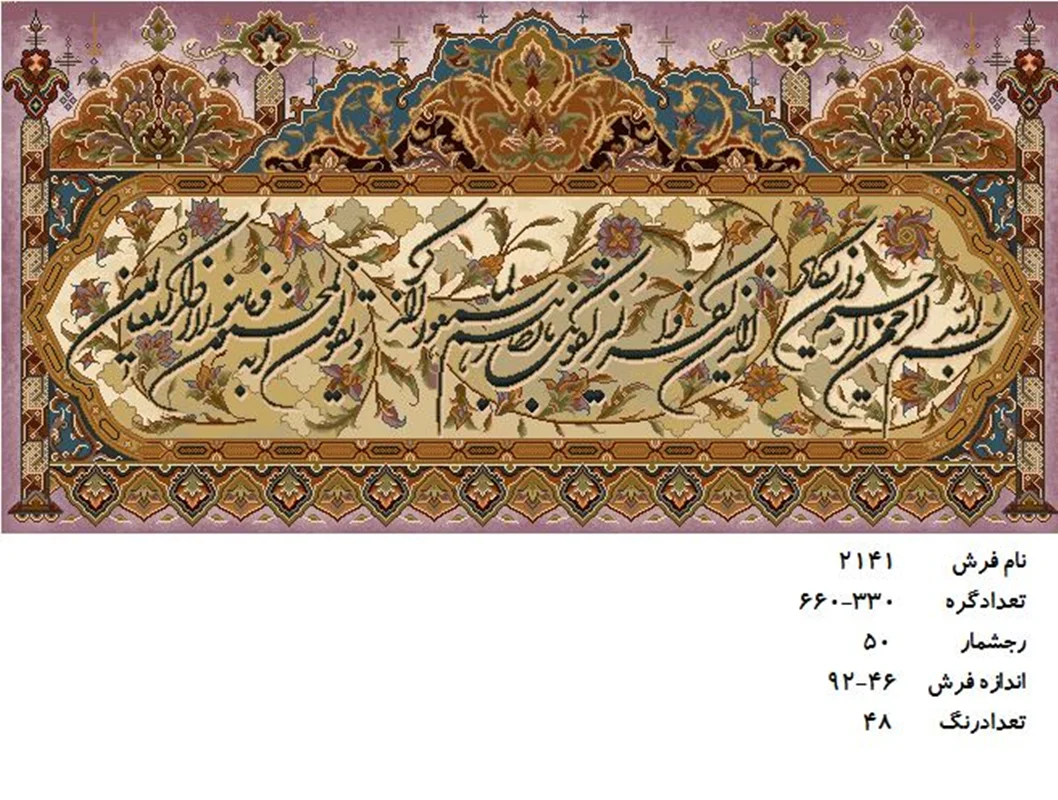 بسم الله الرحمن الرحیم وان یکاد الذین کفروا لیزلقونک بابصارهم لما سمعوا الذکر و یقولون انه لمجنون و ما هو الا ذکر للعالمین
نام فرش ۲۱۴۱
تعدادگره ۶۶۰-۳۳۰
رجشمار ۵۰
اندازه فرش ۹۲-۴۶
تعدادرنگ ۴۸